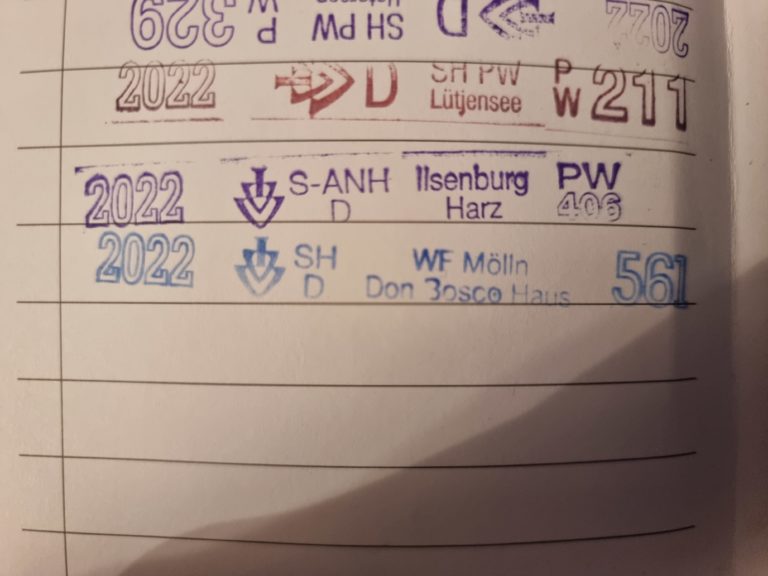 2022 D SH PW PW 329
2022 D SH PW Lütjensee PW 211
2022 S-ANH D Ilsenburg Harz PW 406
2022 SH D WF Mölln Don Bosco Haus 561